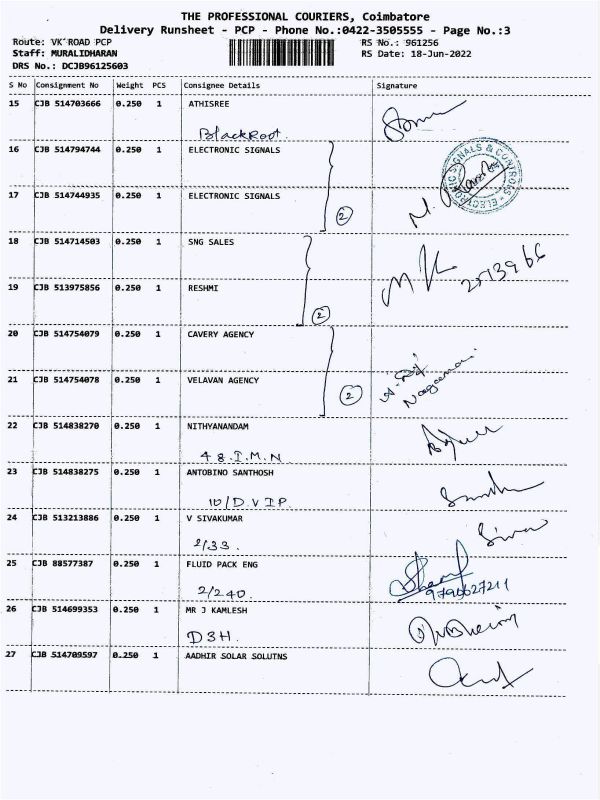 THE PROFESSIONAL COURIERS, Coimbatore
Delivery Runsheet - PCP - Phone No.:0422-3505555 - Page No.:3
Route: VK ROAD PCP RS No.: 961256
Staff: MURALIDHARAN RS Date: 18-Jun-2022
DRS No.: DCJB96125603
S No Consignment No Weight PCS Consignee Details Signature
15 CJB 514703666 0.250 1 ATHISREE
BlackRoot.
16 CJB 514794744 0.250 1 ELECTRONIC SIGNALS
ELECTRONIC SIGNALS & CONTROLS
17 CJB 514744935 0.250 1 ELECTRONIC SIGNALS
2
18 CJB 514714503 0.250 1 SNG SALES
19 CJB 513975856 0.250 1 RESHMI
2
20 CJB 514754079 0.250 1 CAVERY AGENCY
21 CJB 514754078 0.250 1 VELAVAN AGENCY
2
22 CJB 514838270 0.250 1 NITHYANANDAM
48.I.M.N
23 CJB 514838275 0.250 1 ANTOBINO SANTHOSH
10/D.V.I.P.
24 CJB 513213886 0.250 1 V SIVAKUMAR
2/33.
25 CJB 88577387 0.250 1 FLUID PACK ENG
2/240. 9790627211
26 CJB 514699353 0.250 1 MR J KAMLESH
D3H.
27 CJB 514709597 0.250 1 AADHIR SOLAR SOLUTNS